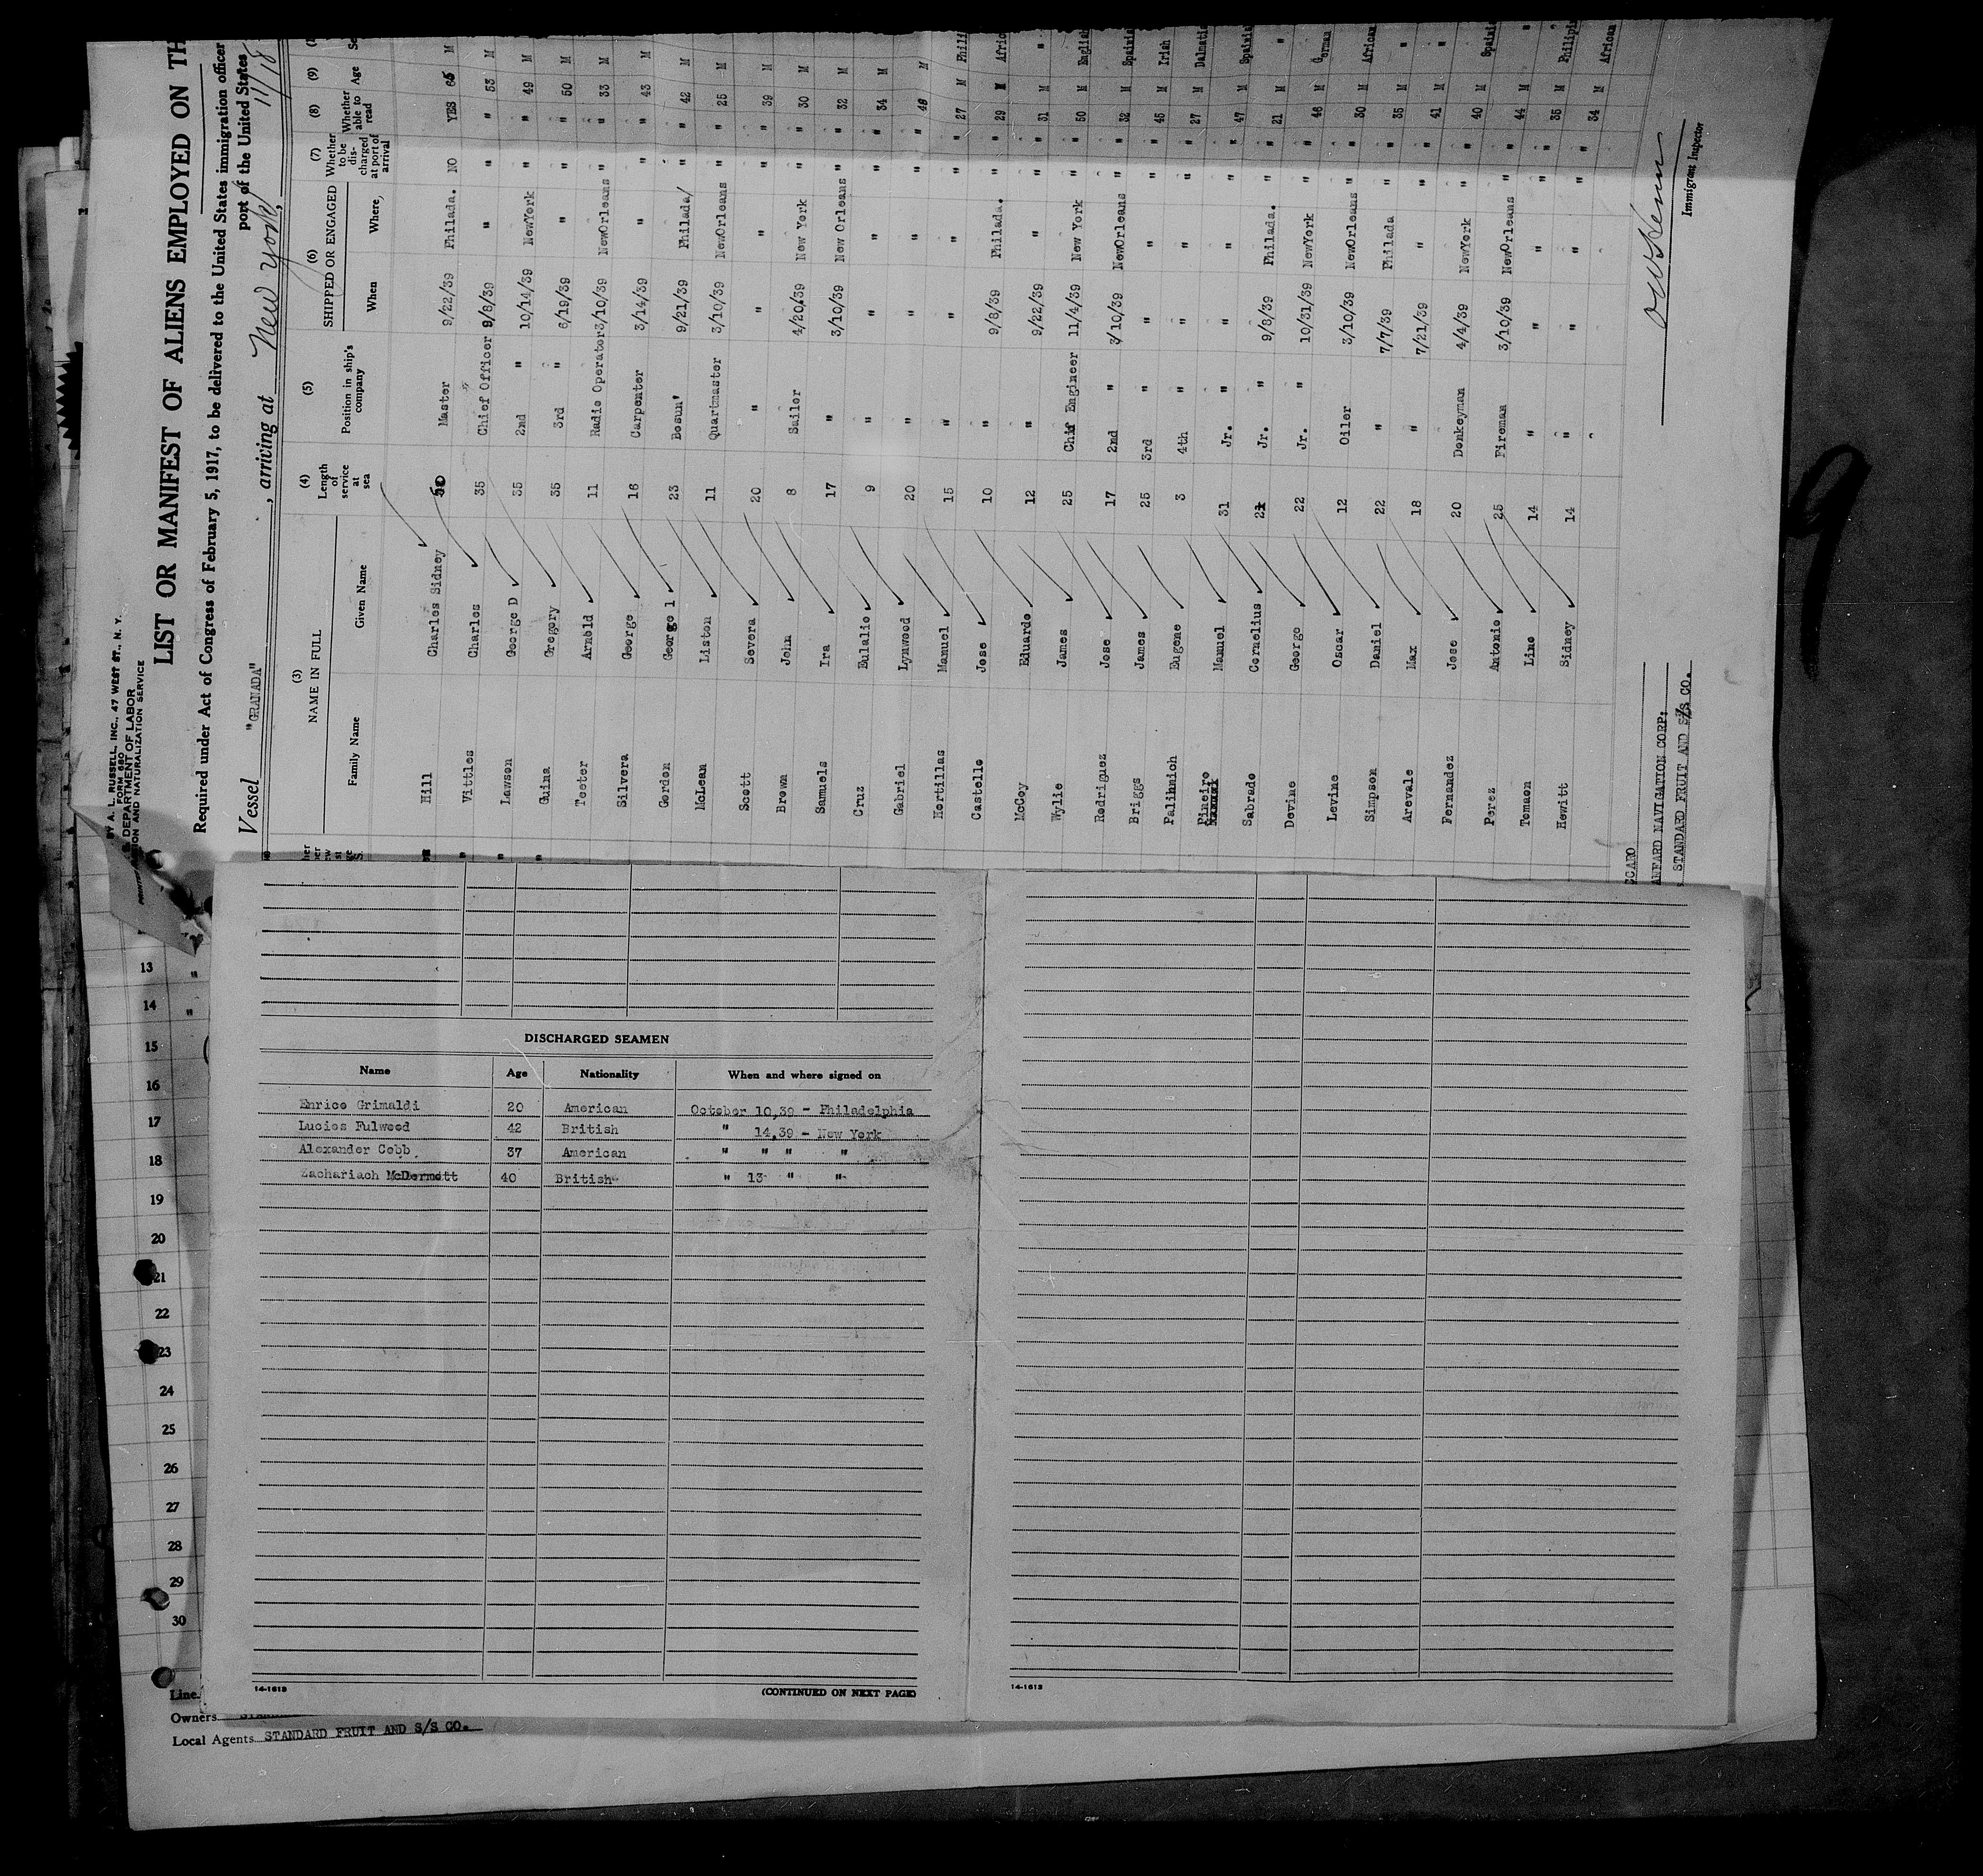 BY A. L. RUSSELL, INC., 47 WEST ST., N. Y.
FORM 680
DEPARTMENT OF LABOR
ION AND NATURALIZATION SERVICE
LIST OR MANIFEST OF ALIENS EMPLOYED ON TH
Required under Act of Congress of February 5, 1917, to be delivered to the United States immigration officer
port of the United States
Vessel "GRANADA", arriving at New York, 11/18
(3) NAME IN FULL (4) Length of service at sea (5) Position in ship's company (6) SHIPPED OR ENGAGED (7) Whether to be discharged at port of arrival (8) Whether able to read (9) Age
Family Name Given Name When Where
Hill Charles Sidney 50 Master 9/22/39 Philada. NO YES 65 M
Vittles Charles 35 Chief Officer 9/8/39 " " " 53 M
Lawson George D 35 2nd " 10/14/39 NewYork " " 49 M
Guina Gregory 35 3rd " 6/19/39 " " " 50 M
Teeter Arnold 11 Radio Operator 3/10/39 NewOrleans " " 33 M
Silvera George 16 Carpenter 3/14/39 " " " 43 M
Gordon George l 23 Bosun' 9/21/39 Philada/ " " 42 M
McLean Liston 11 Quartmaster 3/10/39 NewOrleans " " 25 M
Scott Severa 20 " " " " " 39 M
Brown John 8 Sailor 4/20,39 New York " " 30 M
Samuels Ira 17 " 3/10/39 New Orleans " " 32 M
Cruz Eulalio 9 " " " " " 34 M
Gabriel Lynwood 20 " " " " " 48 M
Hortillas Manuel 15 " " " " " 27 M Phili
Castello Jose 10 " 9/8/39 Philada. " " 29 M Afric
McCoy Eduardo 12 " 9/22/39 " " " 31 M "
Wylie James 25 Chif Engineer 11/4/39 New York " " 50 M English
Rodriguez Jose 17 2nd " 3/10/39 NewOrleans " " 32 M Spainis
Briggs James 25 3rd " " " " " 45 M Irish
Palihnich Eugene 3 4th " " " " " 27 M Dalmati
Pineiro Manuel 31 Jr. " " " " " 47 M Spainis
Sabrado Cornelius 21 Jr. " 9/8/39 Philada. " " 21 M "
Devine George 22 Jr. " 10/31/39 NewYork " " 46 M German
Levine Oscar 12 Oiler 3/10/39 NewOrleans " " 30 M African
Simpson Daniel 22 " 7/7/39 Philada " " 35 M "
Arevale Max 18 " 7/21/39 " " " 41 M "
Fernandez Jose 20 Donkeyman 4/4/39 NewYork " " 40 M Spainis
Perez Antonio 25 Fireman 3/10/39 NewOrleans " " 44 M "
Tomaon Lino 14 " " " " " 35 M Philipi
Hewitt Sidney 14 " " " " " 34 M African
CCARO
ANFARD NAVIGATION CORP:
STANDARD FRUIT AND S/S CO.
Immigrant Inspector
9
13
14
15
16
17
18
19
20
21
22
23
24
25
26
27
28
29
30
DISCHARGED SEAMEN
Name Age Nationality When and where signed on
Enrico Grimaldi 20 American October 10,39 - Philadelphia
Lucios Fulwood 42 British " 14,39 - New York
Alexander Cobb. 37 American " " " "
Zachariach McDermott 40 British " 13 " "
14-1613 (CONTINUED ON NEXT PAGE) 14-1613
Line
Owners
Local Agents STANDARD FRUIT AND S/S CO.